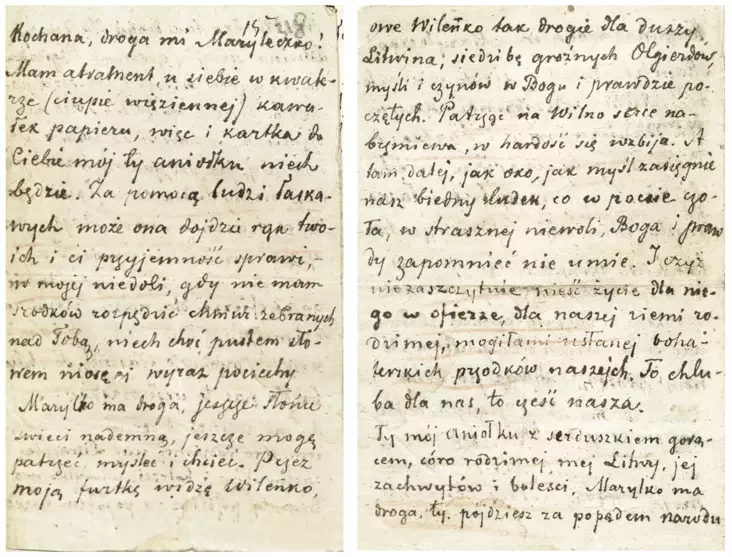 218
Kochana, droga mi Maryleczko!
Mam atrament u siebie w kwate-
rze (ciupie więziennej) kawa-
łek papieru, więc i kartka do
Ciebie mój ty aniołku niech
będzie. Za pomocą ludzi łaska-
wych może ona dojdzie rąk two-
ich i ci przyjemność sprawi,-
w mojej niedoli, gdy nie mam
środków rozpędzić chmur zebranych
nad Tobą, niech choć pustem sło-
wem niosę ci wyraz pociechy
Marylko ma droga, jeszcze słońce
świeci nademną, jeszcze mogę
patrzeć, myśleć i chcieć. Przez
moją furtkę widzę Wileńko,
owe Wileńko tak drogie dla duszy
Litwina, siedzibę groźnych Olgierdów,
myśli i czynów w Bogu i prawdzie po-
czętych. Patrząc na Wilno serce na-
brzmiewa, w hardość się wzbija. A
tam, dalej, jak oko, jak myśl zasięgnie
nasz biedny ludek, co w pocie czo-
ła, w strasznej niewoli, Boga i praw
dy zapomnieć nie umie. I czyż
niezaszczytnie nieść życie dla nie-
go w ofierze, dla naszej ziemi ro-
dzimej, mogiłami usłanej boha-
terskich przodków naszych. To chlu-
ba dla nas, to cześć nasza.
Ty mój aniołku z serduszkiem gorą-
cem, córo rodzimej mej Litwy, jej
zachwytów i boleści, Marylko ma
droga, ty pójdziesz za popędem narodu